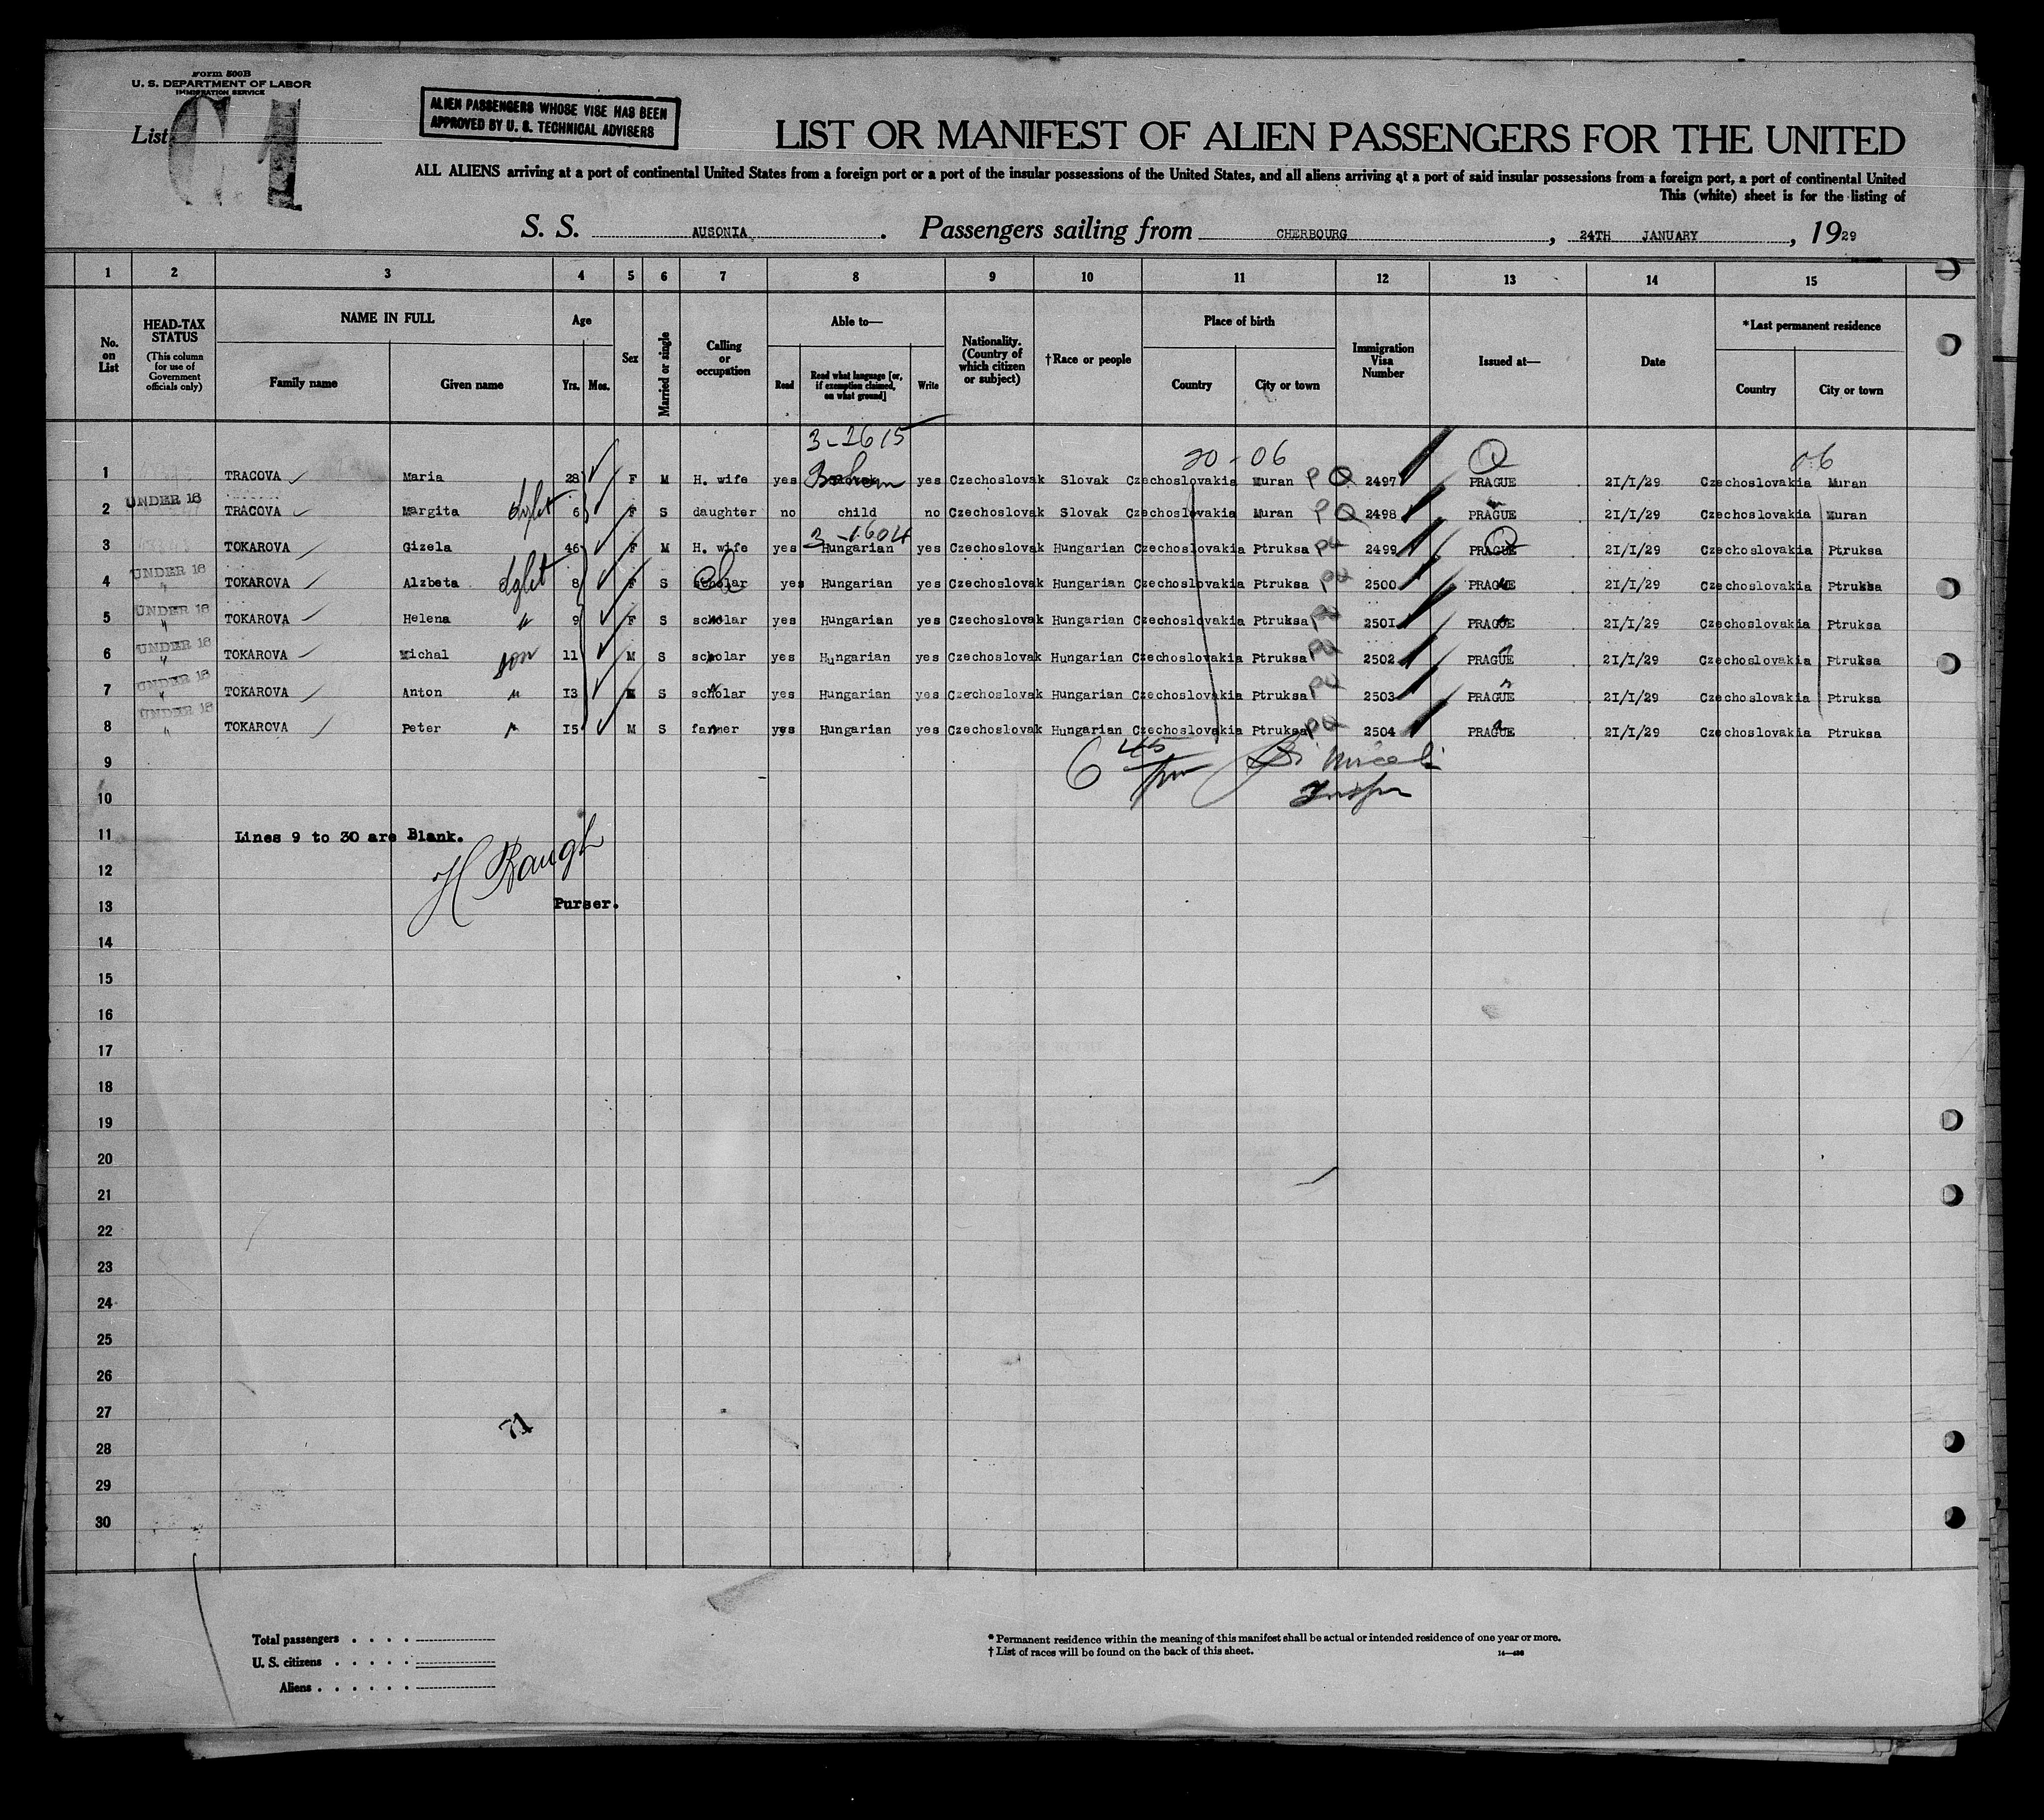 Form 500B
U. S. DEPARTMENT OF LABOR
IMMIGRATION SERVICE
List C1
ALIEN PASSENGERS WHOSE VISE HAS BEEN
APPROVED BY U. S. TECHNICAL ADVISERS
LIST OR MANIFEST OF ALIEN PASSENGERS FOR THE UNITED
ALL ALIENS arriving at a port of continental United States from a foreign port or a port of the insular possessions of the United States, and all aliens arriving at a port of said insular possessions from a foreign port, a port of continental United
This (white) sheet is for the listing of
S. S. AUSONIA. Passengers sailing from CHERBOURG, 24TH JANUARY, 1929
1 2 3 4 5 6 7 8 9 10 11 12 13 14 15
No. on List
HEAD-TAX STATUS (This column for use of Government officials only)
NAME IN FULL
Family name Given name
Age
Yrs. Mos.
Sex
Married or single
Calling or occupation
Able to—
Read Read what language [or, if exemption claimed, on what ground] Write
Nationality. (Country of which citizen or subject)
†Race or people
Place of birth
Country City or town
Immigration Visa Number
Issued at—
Date
*Last permanent residence
Country City or town
3-2615 20-06 06
1 TRACOVA Maria 28 F M H. wife yes yes Czechoslovak Slovak Czechoslovakia Muran PQ 2497 PRAGUE 21/I/29 Czechoslovakia Muran
UNDER 16
2 TRACOVA Margita 6 F S daughter no child no Czechoslovak Slovak Czechoslovakia Muran PQ 2498 PRAGUE 21/I/29 Czechoslovakia Muran
3-1604
3 TOKAROVA Gizela 46 F M H. wife yes Hungarian yes Czechoslovak Hungarian Czechoslovakia Ptruksa PQ 2499 PRAGUE 21/I/29 Czechoslovakia Ptruksa
UNDER 16
4 TOKAROVA Alzbeta 8 F S scholar yes Hungarian yes Czechoslovak Hungarian Czechoslovakia Ptruksa PQ 2500 PRAGUE 21/I/29 Czechoslovakia Ptruksa
UNDER 16
5 " TOKAROVA Helena " 9 F S scholar yes Hungarian yes Czechoslovak Hungarian Czechoslovakia Ptruksa PQ 2501 PRAGUE 21/I/29 Czechoslovakia Ptruksa
UNDER 16
6 " TOKAROVA Michal son 11 M S scholar yes Hungarian yes Czechoslovak Hungarian Czechoslovakia Ptruksa PQ 2502 PRAGUE 21/I/29 Czechoslovakia Ptruksa
UNDER 16
7 " TOKAROVA Anton " I3 M S scholar yes Hungarian yes Czechoslovak Hungarian Czechoslovakia Ptruksa PQ 2503 PRAGUE 21/I/29 Czechoslovakia Ptruksa
UNDER 16
8 " TOKAROVA Peter " I5 M S farmer yes Hungarian yes Czechoslovak Hungarian Czechoslovakia Ptruksa PQ 2504 PRAGUE 21/I/29 Czechoslovakia Ptruksa
9 6 45
10
11 Lines 9 to 30 are Blank.
12 H Baugh
13 Purser.
14
15
16
17
18
19
20
21
22
23
24
25
26
27 71
28
29
30
Total passengers
U. S. citizens
Aliens
* Permanent residence within the meaning of this manifest shall be actual or intended residence of one year or more.
† List of races will be found on the back of this sheet.